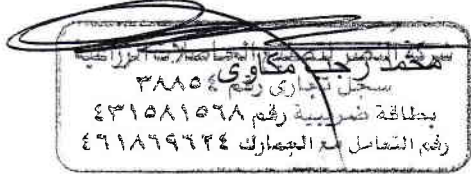 محمد رجب مكاوى
سجل تجارى رقم ٣٨٨٥٤
بطاقة ضريبية رقم ٤٣١٥٨١٥٦٨
رقم التعامل مع الجمارك ٤٦١٨٦٩٦٢٤